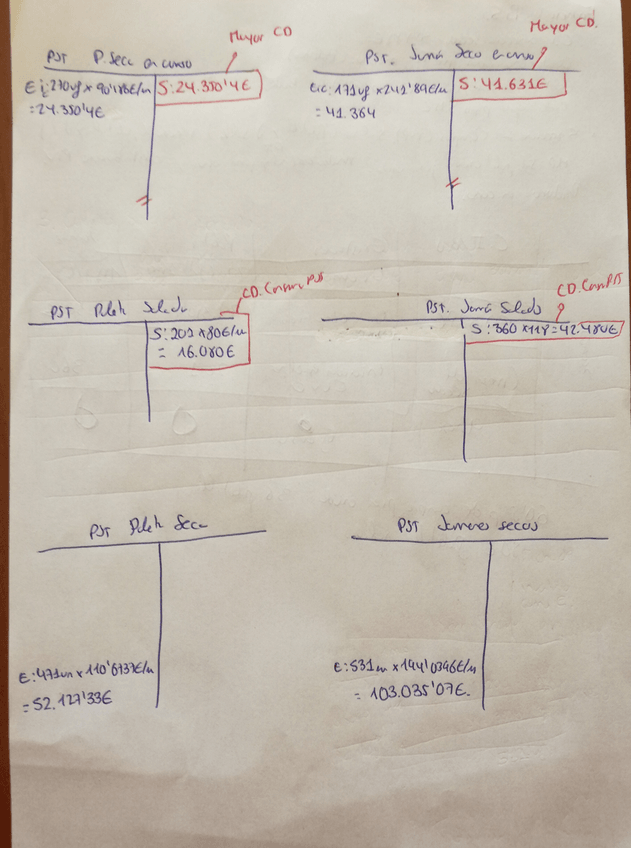 Mayor CD
Mayor CD.
PST P. Seca en curso
PST. Jamón Seco en curso
Ei: 270uf x 90'186€/u
= 24.350'4€
S: 24.350'4€
Eic: 171uf x 241'89€/u
= 41.364
S: 41.631€
CD. Consumo PST
CD. Cons PST
PST Paleta Salada
PST. Jamón Salado
S: 201 x 80€/u
= 16.080€
S: 360 x 118 = 42.480€
PST Paleta Seca
PST Jamones secos
E: 471un x 110'6737€/u
= 52.127'33€
E: 531un x 194'0396€/u
= 103.035'07€.